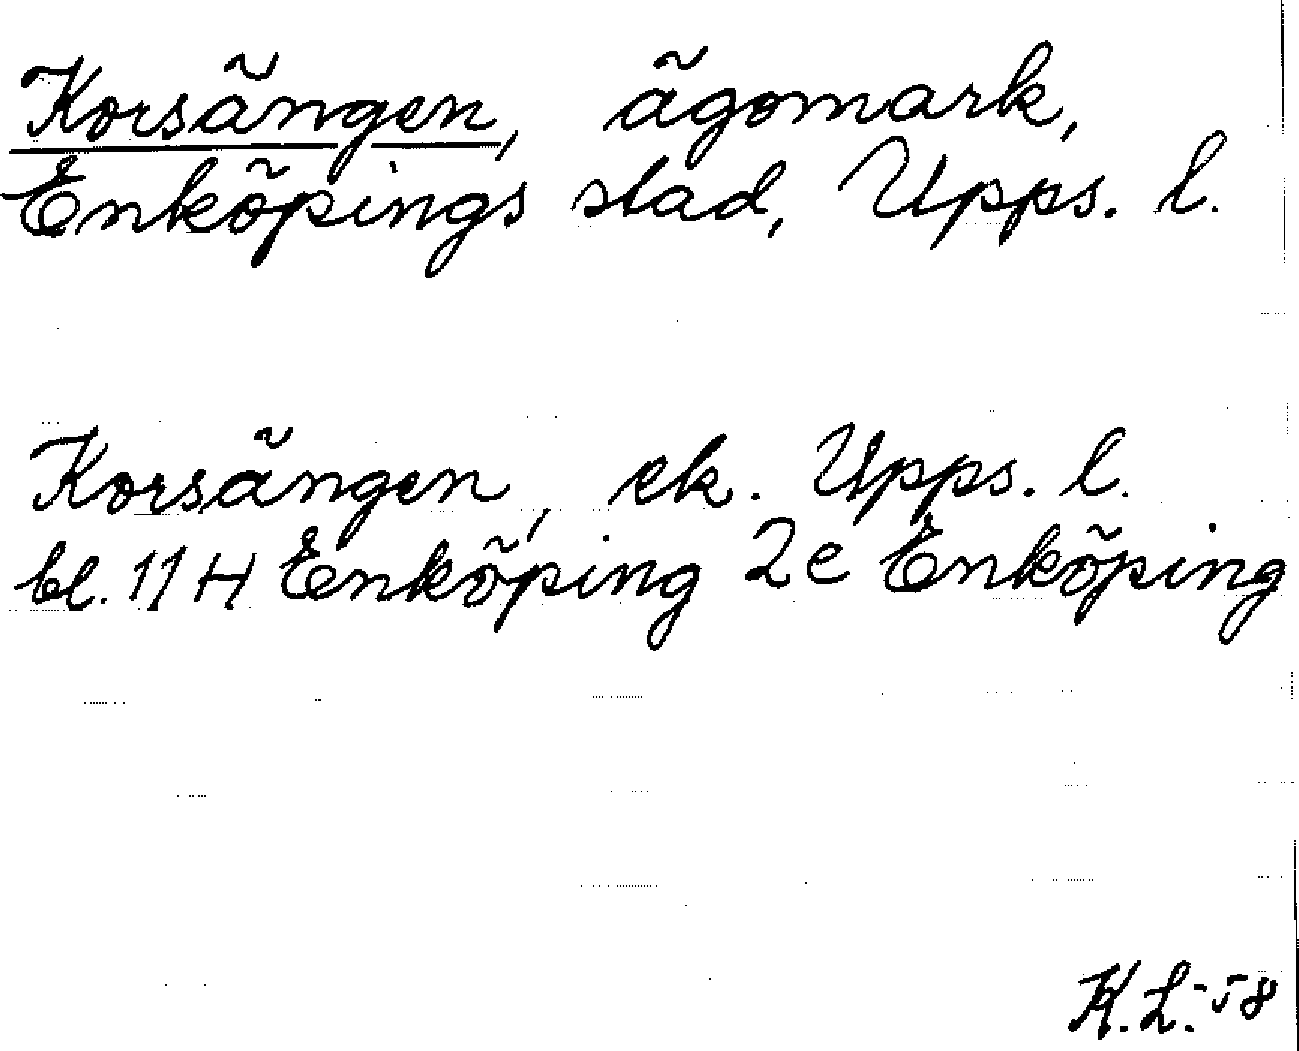 Korsängen, ägomark,
Enköpings stad, Upps. l.
Korsängen, ek. Upps. l.
bl. 11 H Enköping 2 e Enköping
K. L. -58